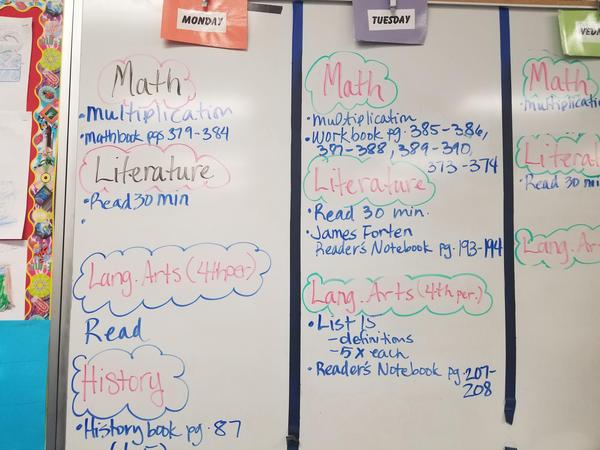 MONDAY
Math
•Multiplication
•Mathbook pgs 379-384
Literature
•Read 30 min
•
Lang. Arts (4th per.)
Read
History
•History book pg. 87
TUESDAY
Math
•multiplication
•Workbook pg. 385-386,
387-388, 389-390,
373-374
Literature
•Read 30 min.
•James Forten
Reader's Notebook pg. 193-194
Lang. Arts (4th per.)
•List 15
-definitions
-5x each
•Reader's Notebook pg. 207-
208
Math
•Read 30